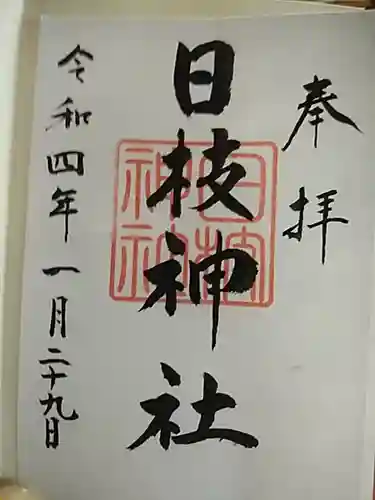 奉拝
日枝神社
日枝神社
令和四年一月二十九日